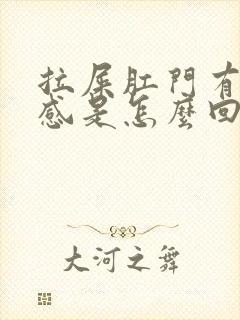 拉屎肛門有
感是怎麼回
大河之舞